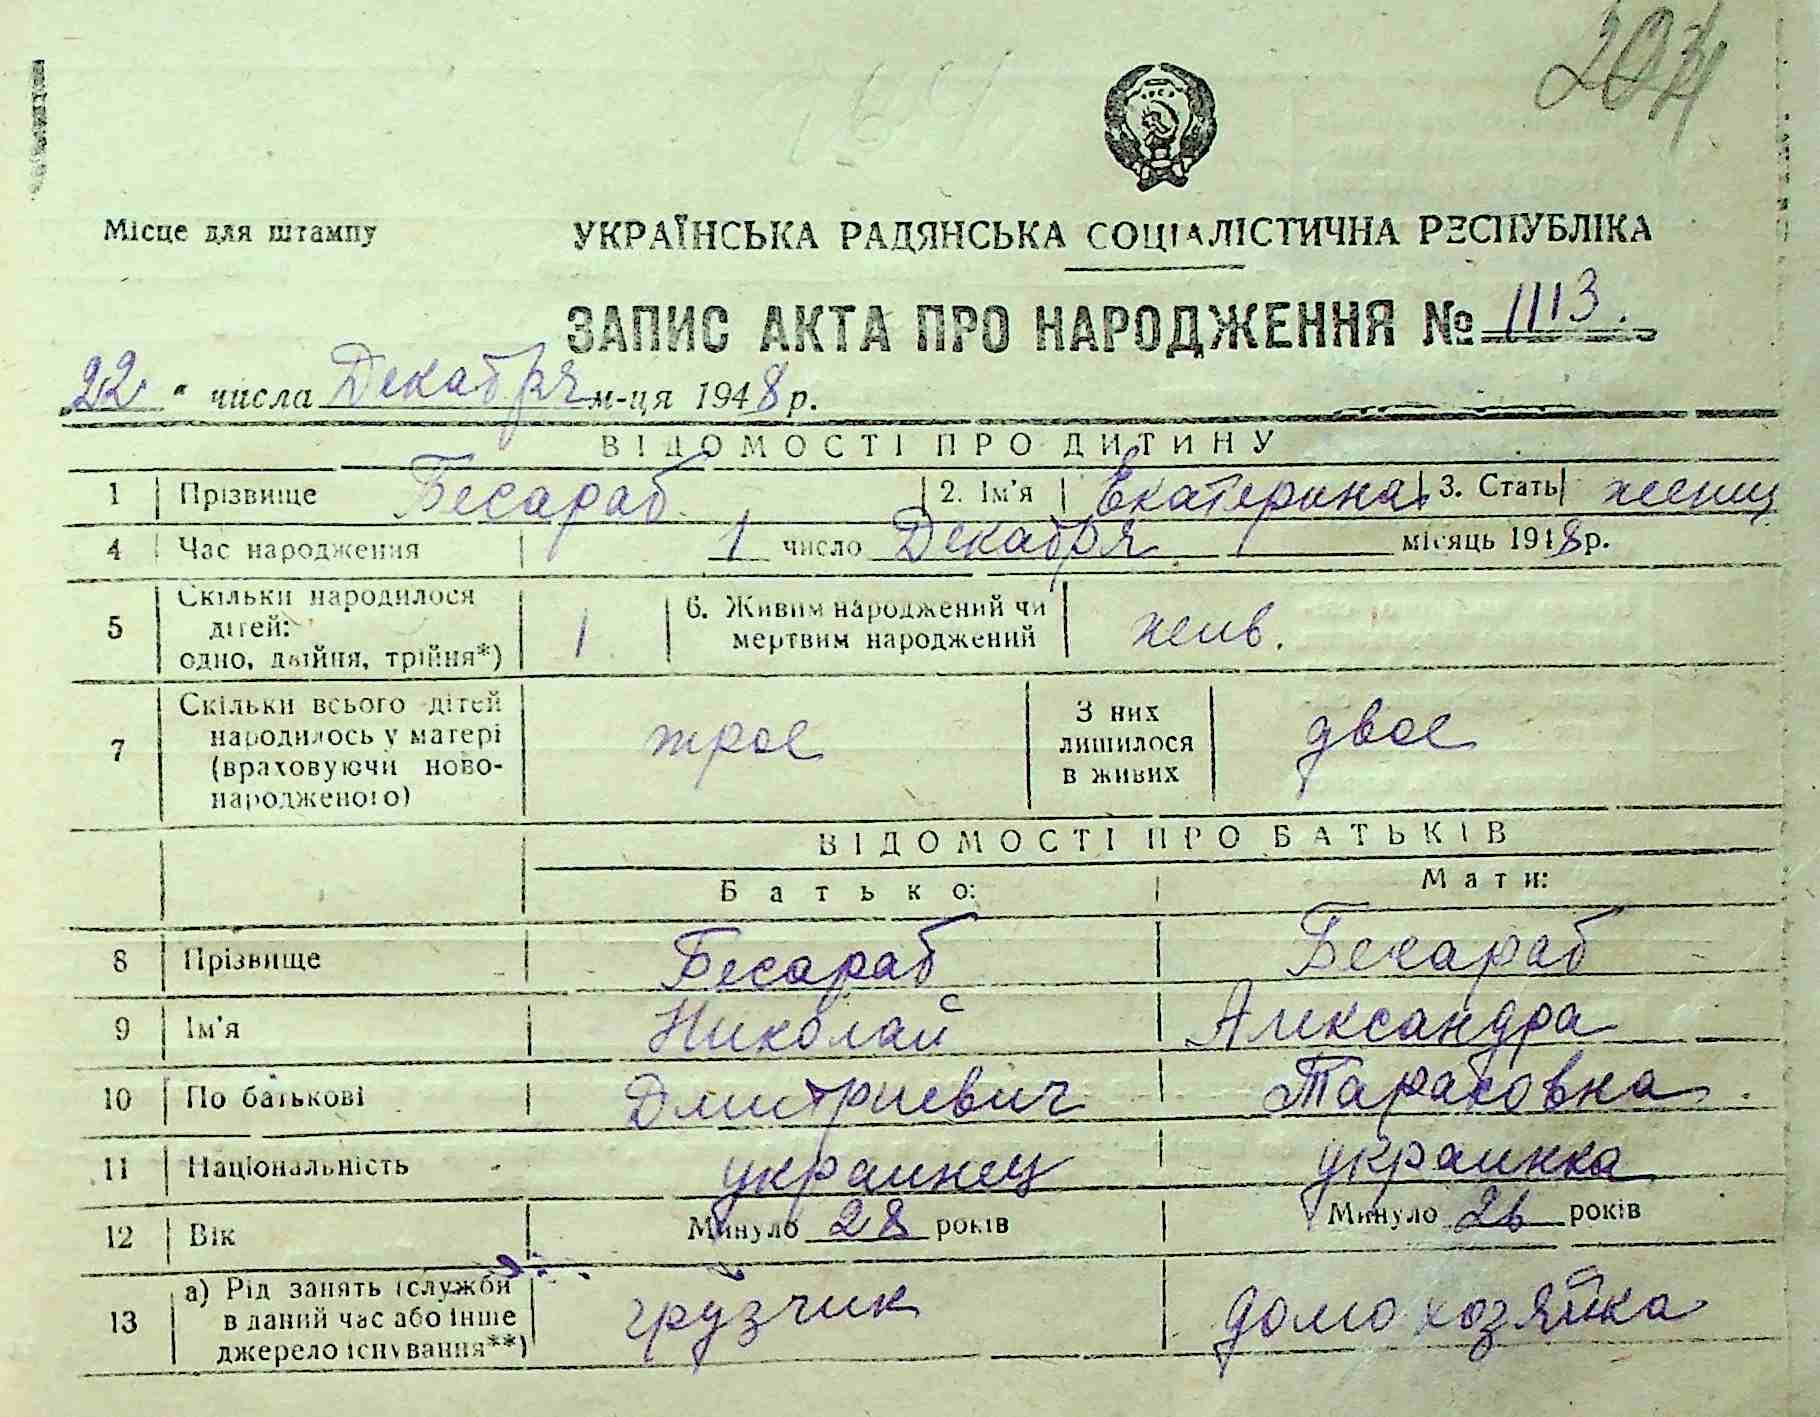 204
Місце для штампу
УКРАЇНСЬКА РАДЯНСЬКА СОЦІАЛІСТИЧНА РЕСПУБЛІКА
ЗАПИС АКТА ПРО НАРОДЖЕННЯ № 1113.
„22" числа Декабря м-ця 1948 р.
ВІДОМОСТІ ПРО ДИТИНУ
1 Прізвище Бесараб 2. Ім'я Екатерина 3. Стать женщ
4 Час народження 1 число Декабря місяць 1948 р.
5 Скільки народилося дітей: одно, двійня, трійня*) 1 6. Живим народжений чи мертвим народжений жив.
7 Скільки всього дітей народилось у матері (враховуючи новонародженого) трое З них лишилося в живих двое
ВІДОМОСТІ ПРО БАТЬКІВ
Батько: Мати:
8 Прізвище Бесараб Бесараб
9 Ім'я Николай Александра
10 По батькові Дмитриевич Тарасовна
11 Національність украинец украинка
12 Вік Минуло 28 років Минуло 26 років
13 а) Рід занять (служби в даний час або інше джерело існування**) грузчик домохозяйка